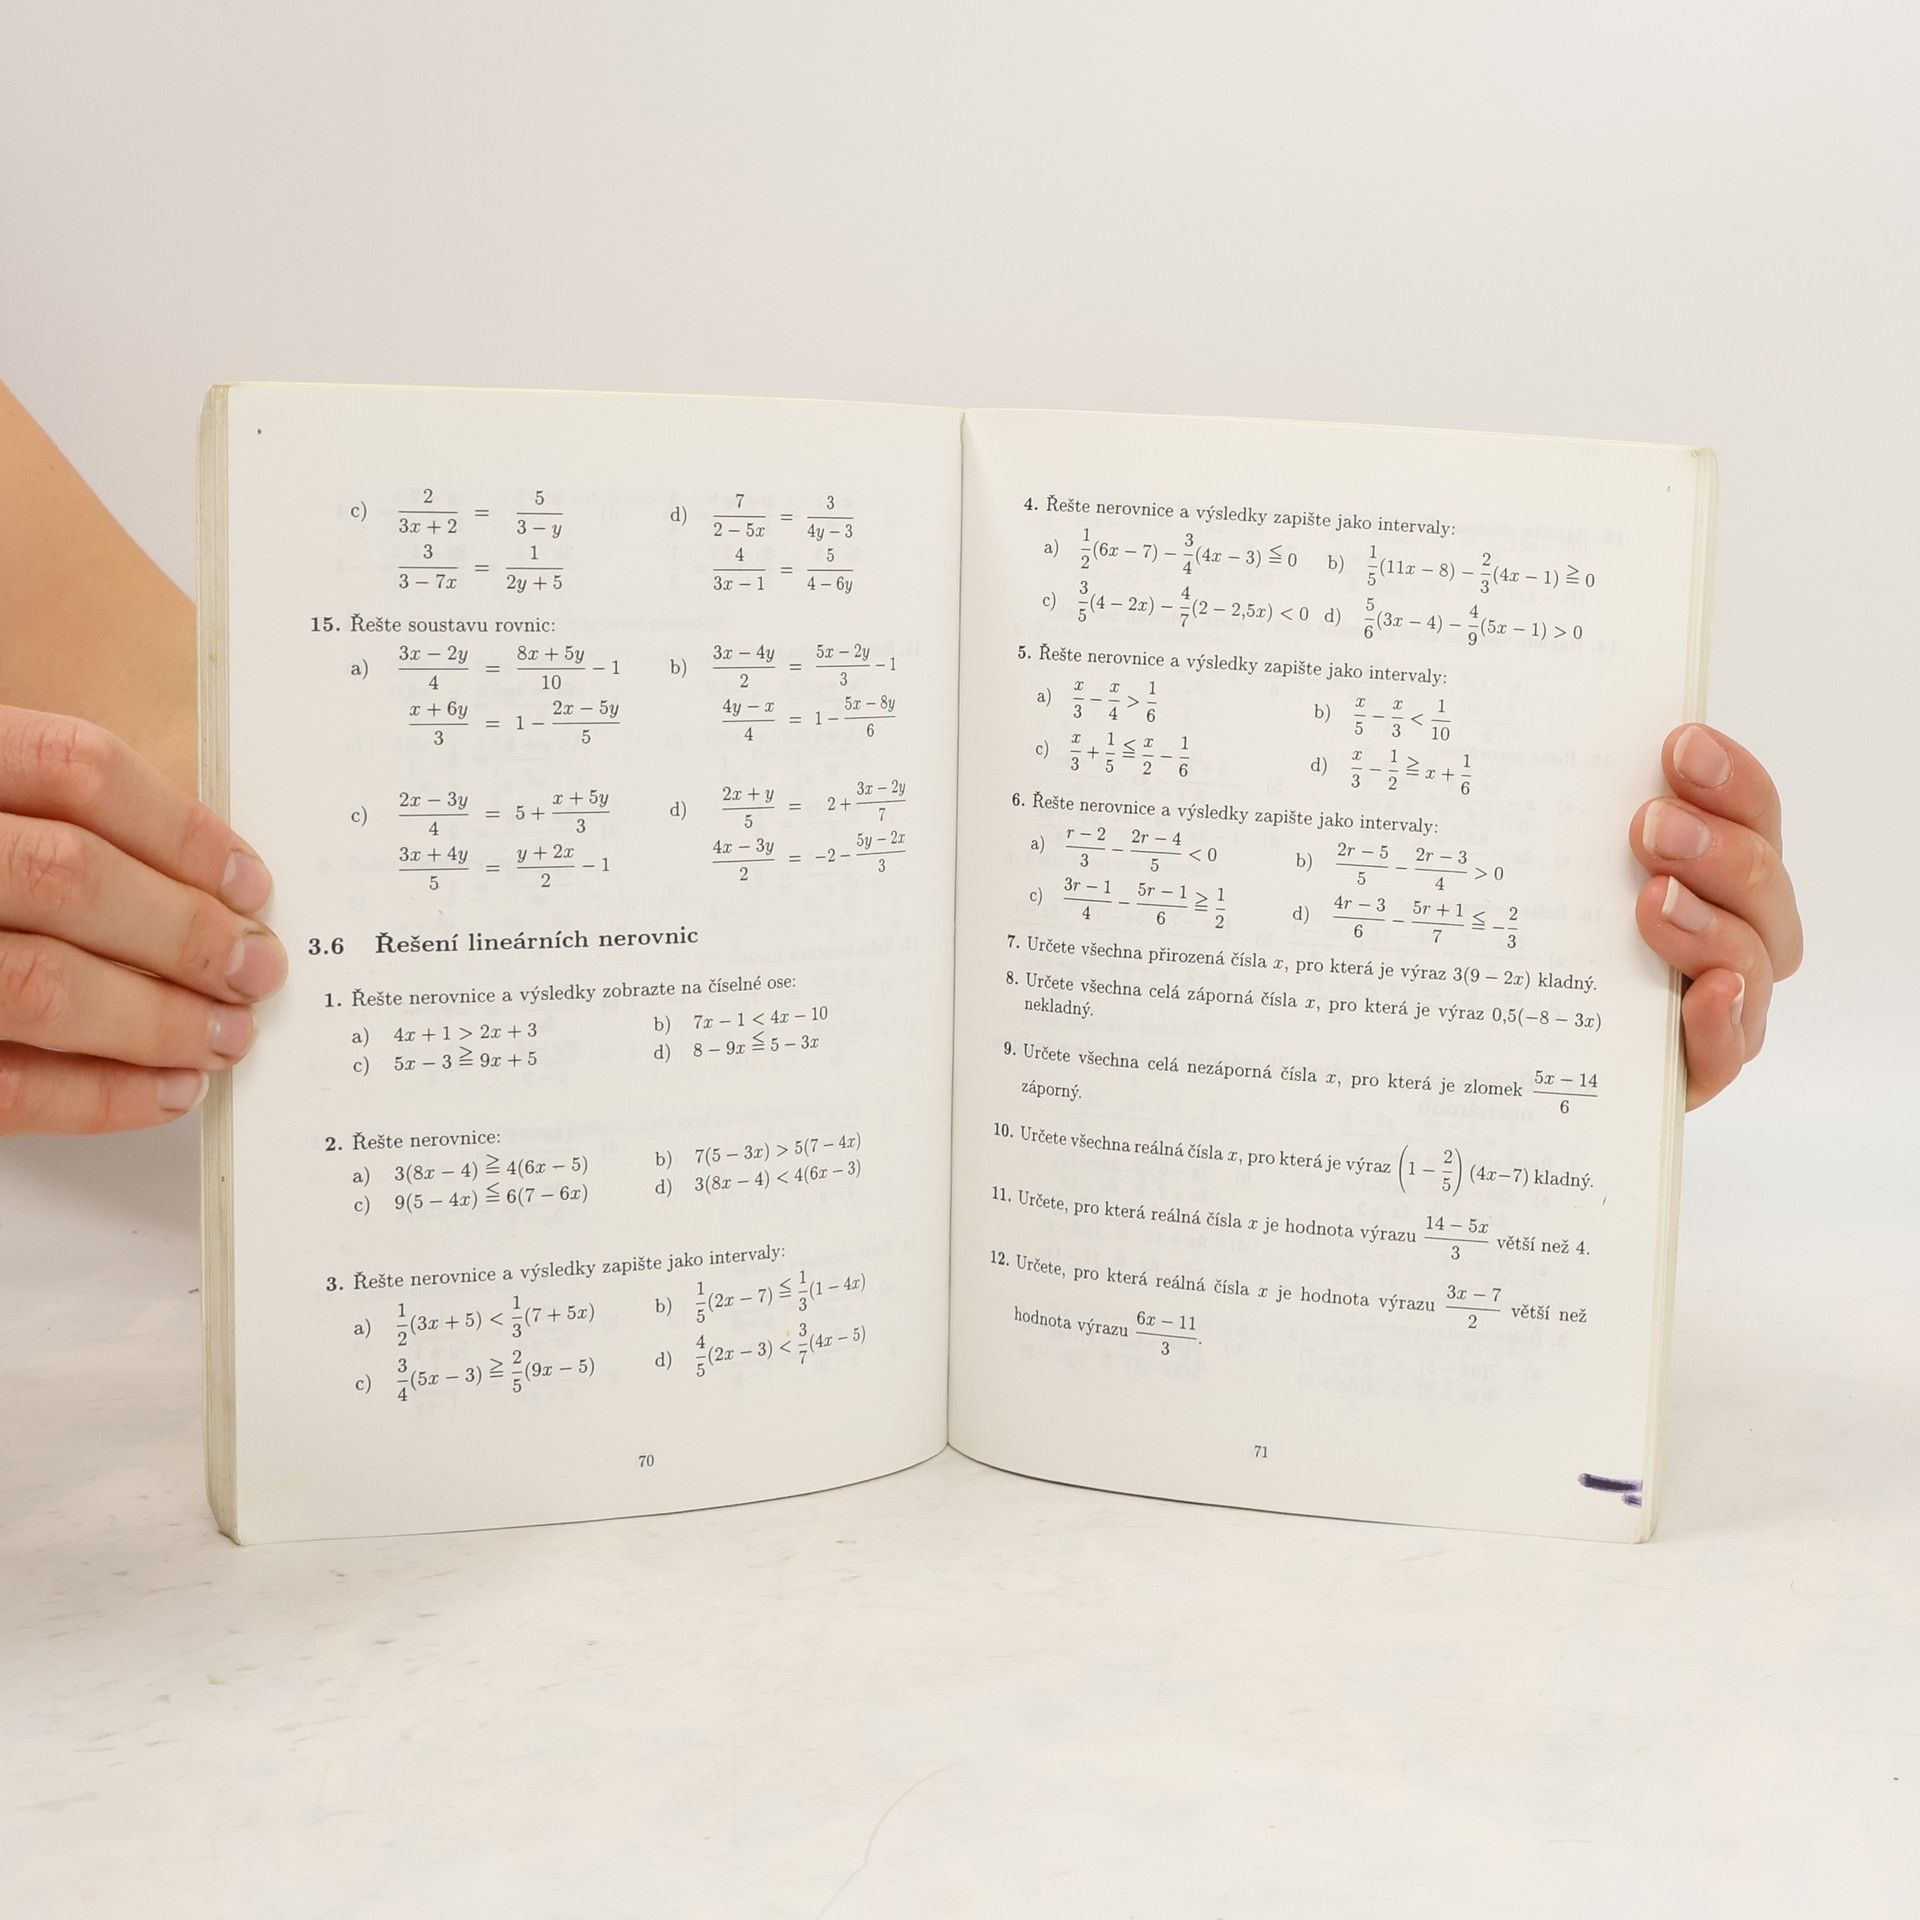 c) 2/(3x + 2) = 5/(3 − y) d) 7/(2 − 5x) = 3/(4y − 3)
3/(3 − 7x) = 1/(2y + 5) 4/(3x − 1) = 5/(4 − 6y)
15. Řešte soustavu rovnic:
a) (3x − 2y)/4 = (8x + 5y)/10 − 1 b) (3x − 4y)/2 = (5x − 2y)/3 − 1
(x + 6y)/3 = 1 − (2x − 5y)/5 (4y − x)/4 = 1 − (5x − 8y)/6
c) (2x − 3y)/4 = 5 + (x + 5y)/3 d) (2x + y)/5 = 2 + (3x − 2y)/7
(3x + 4y)/5 = (y + 2x)/2 − 1 (4x − 3y)/2 = −2 − (5y − 2x)/3
3.6 Řešení lineárních nerovnic
1. Řešte nerovnice a výsledky zobrazte na číselné ose:
a) 4x + 1 > 2x + 3 b) 7x − 1 < 4x − 10
c) 5x − 3 ≧ 9x + 5 d) 8 − 9x ≦ 5 − 3x
2. Řešte nerovnice:
a) 3(8x − 4) ≧ 4(6x − 5) b) 7(5 − 3x) > 5(7 − 4x)
c) 9(5 − 4x) ≦ 6(7 − 6x) d) 3(8x − 4) < 4(6x − 3)
3. Řešte nerovnice a výsledky zapište jako intervaly:
a) 1/2(3x + 5) < 1/3(7 + 5x) b) 1/5(2x − 7) ≦ 1/3(1 − 4x)
c) 3/4(5x − 3) ≧ 2/5(9x − 5) d) 4/5(2x − 3) < 3/7(4x − 5)
70
4. Řešte nerovnice a výsledky zapište jako intervaly:
a) 1/2(6x − 7) − 3/4(4x − 3) ≦ 0 b) 1/5(11x − 8) − 2/3(4x − 1) ≧ 0
c) 3/5(4 − 2x) − 4/7(2 − 2,5x) < 0 d) 5/6(3x − 4) − 4/9(5x − 1) > 0
5. Řešte nerovnice a výsledky zapište jako intervaly:
a) x/3 − x/4 > 1/6 b) x/5 − x/3 < 1/10
c) x/3 + 1/5 ≦ x/2 − 1/6 d) x/3 − 1/2 ≧ x + 1/6
6. Řešte nerovnice a výsledky zapište jako intervaly:
a) (r − 2)/3 − (2r − 4)/5 < 0 b) (2r − 5)/5 − (2r − 3)/4 > 0
c) (3r − 1)/4 − (5r − 1)/6 ≧ 1/2 d) (4r − 3)/6 − (5r + 1)/7 ≦ −2/3
7. Určete všechna přirozená čísla x, pro která je výraz 3(9 − 2x) kladný.
8. Určete všechna celá záporná čísla x, pro která je výraz 0,5(−8 − 3x)
nekladný.
9. Určete všechna celá nezáporná čísla x, pro která je zlomek (5x − 14)/6
záporný.
10. Určete všechna reálná čísla x, pro která je výraz (1 − 2/5)(4x−7) kladný.
11. Určete, pro která reálná čísla x je hodnota výrazu (14 − 5x)/3 větší než 4.
12. Určete, pro která reálná čísla x je hodnota výrazu (3x − 7)/2 větší než
hodnota výrazu (6x − 11)/3.
71